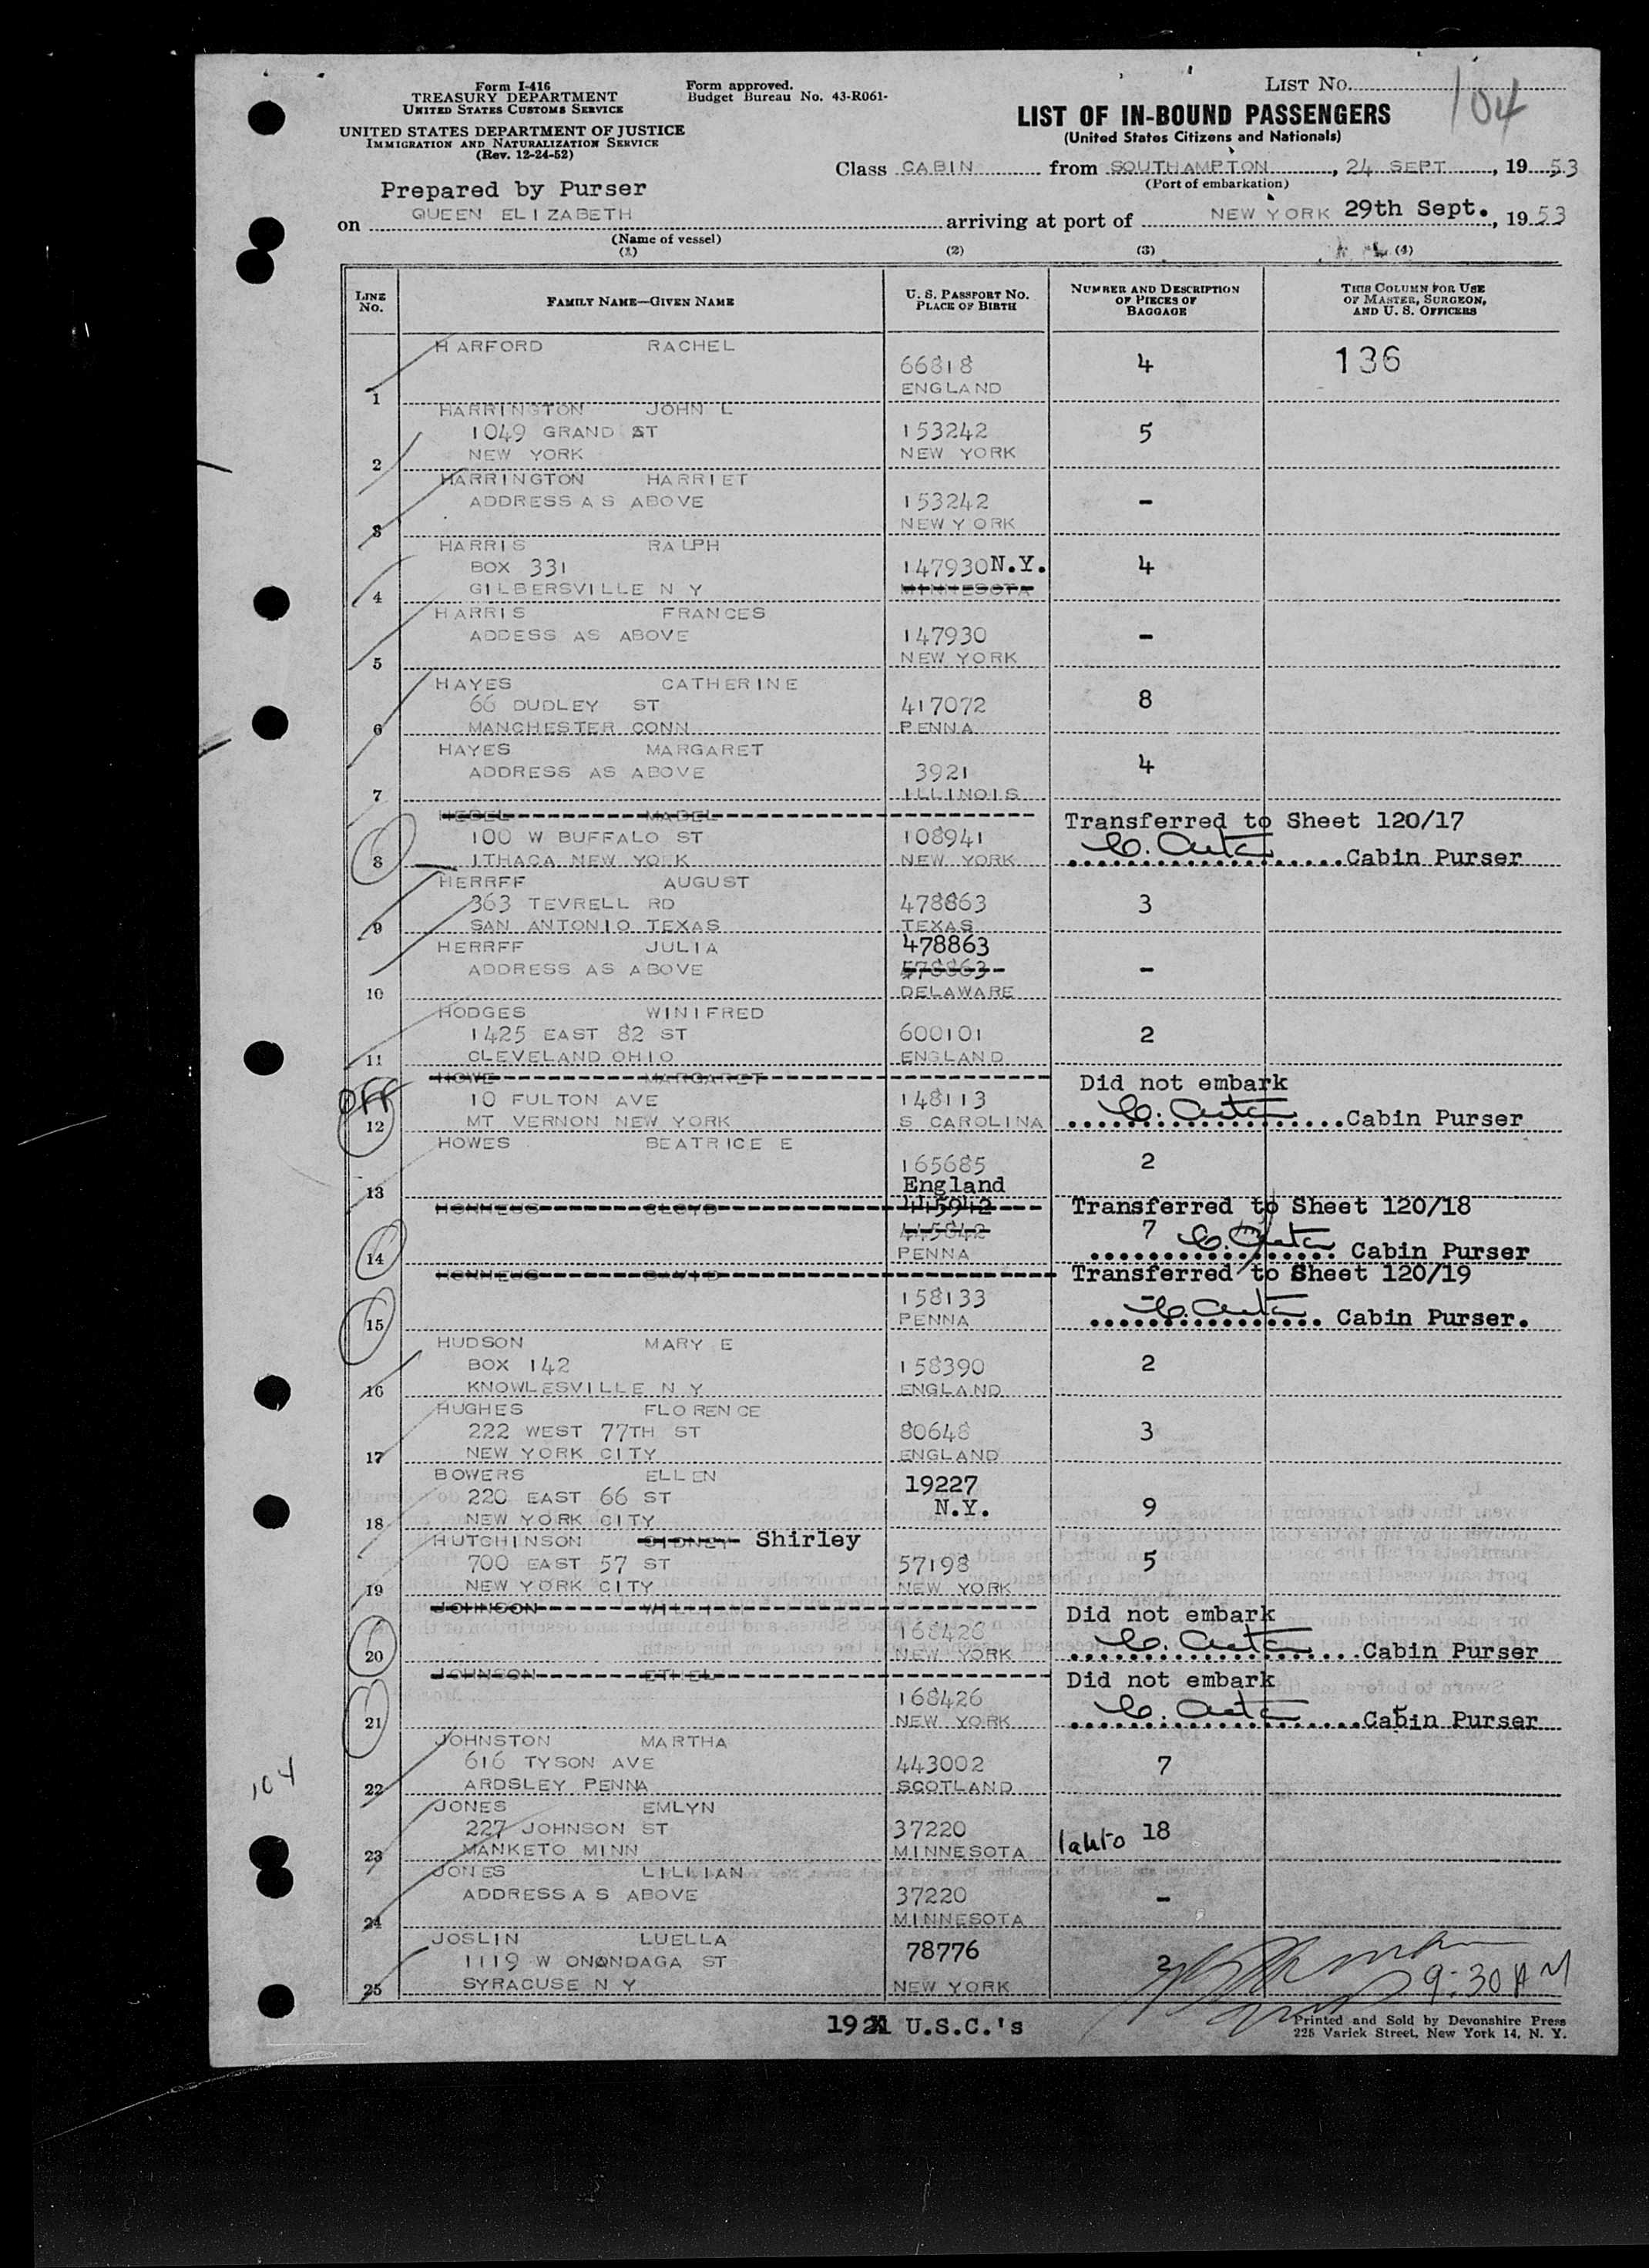 Form I-416
TREASURY DEPARTMENT
UNITED STATES CUSTOMS SERVICE
UNITED STATES DEPARTMENT OF JUSTICE
IMMIGRATION AND NATURALIZATION SERVICE
(Rev. 12-24-52)
Form approved.
Budget Bureau No. 43-R061-
LIST NO. 104
LIST OF IN-BOUND PASSENGERS
(United States Citizens and Nationals)
Class CABIN from SOUTHAMPTON, 24 SEPT, 1953
(Port of embarkation)
Prepared by Purser
on QUEEN ELIZABETH arriving at port of NEW YORK 29th Sept., 1953
(Name of vessel)
(1) (2) (3) (4)
LINE NO. FAMILY NAME—GIVEN NAME U. S. PASSPORT NO. PLACE OF BIRTH NUMBER AND DESCRIPTION OF PIECES OF BAGGAGE THIS COLUMN FOR USE OF MASTER, SURGEON, AND U. S. OFFICERS
HARFORD RACHEL
66818 4 136
1 ENGLAND
HARRINGTON JOHN L
1049 GRAND ST 153242 5
2 NEW YORK NEW YORK
HARRINGTON HARRIET
ADDRESS AS ABOVE 153242 -
3 NEW YORK
HARRIS RALPH
BOX 331 147930 N.Y. 4
4 GILBERSVILLE N Y MINNESOTA
HARRIS FRANCES
ADDESS AS ABOVE 147930 -
5 NEW YORK
HAYES CATHERINE
66 DUDLEY ST 417072 8
6 MANCHESTER CONN PENNA
HAYES MARGARET
ADDRESS AS ABOVE 3921 4
7 ILLINOIS
Transferred to Sheet 120/17
100 W BUFFALO ST 108941
8 ITHACA NEW YORK NEW YORK Cabin Purser
HERRFF AUGUST
363 TEVRELL RD 478863 3
9 SAN ANTONIO TEXAS TEXAS
HERRFF JULIA 478863
ADDRESS AS ABOVE 578863 -
10 DELAWARE
HODGES WINIFRED
1425 EAST 82 ST 600101 2
11 CLEVELAND OHIO ENGLAND
HOWE MARGARET Did not embark
OFF 10 FULTON AVE 148113
12 MT VERNON NEW YORK S CAROLINA Cabin Purser
HOWES BEATRICE E
165685 2
13 England
HONNEUS CLOYD 445942 Transferred to Sheet 120/18
445842 7
14 PENNA Cabin Purser
HONNEUS DAVID Transferred to Sheet 120/19
158133 -
15 PENNA Cabin Purser.
HUDSON MARY E
BOX 142 158390 2
16 KNOWLESVILLE N Y ENGLAND
HUGHES FLORENCE
222 WEST 77TH ST 80648 3
17 NEW YORK CITY ENGLAND
BOWERS ELLEN 19227
220 EAST 66 ST N.Y. 9
18 NEW YORK CITY
HUTCHINSON SIDNEY Shirley
700 EAST 57 ST 57198 5
19 NEW YORK CITY NEW YORK
JOHNSON Did not embark
168426
20 NEW YORK Cabin Purser
JOHNSON ETHEL Did not embark
168426
21 NEW YORK Cabin Purser
JOHNSTON MARTHA
616 TYSON AVE 443002 7
104 22 ARDSLEY PENNA SCOTLAND
JONES EMLYN
227 JOHNSON ST 37220 18
23 MANKETO MINN MINNESOTA
JONES LILLIAN
ADDRESS AS ABOVE 37220 -
24 MINNESOTA
JOSLIN LUELLA
1119 W ONONDAGA ST 78776 2
25 SYRACUSE N Y NEW YORK 9:30 AM
U.S.C.'s
Printed and Sold by Devonshire Press
225 Varick Street, New York 14, N. Y.